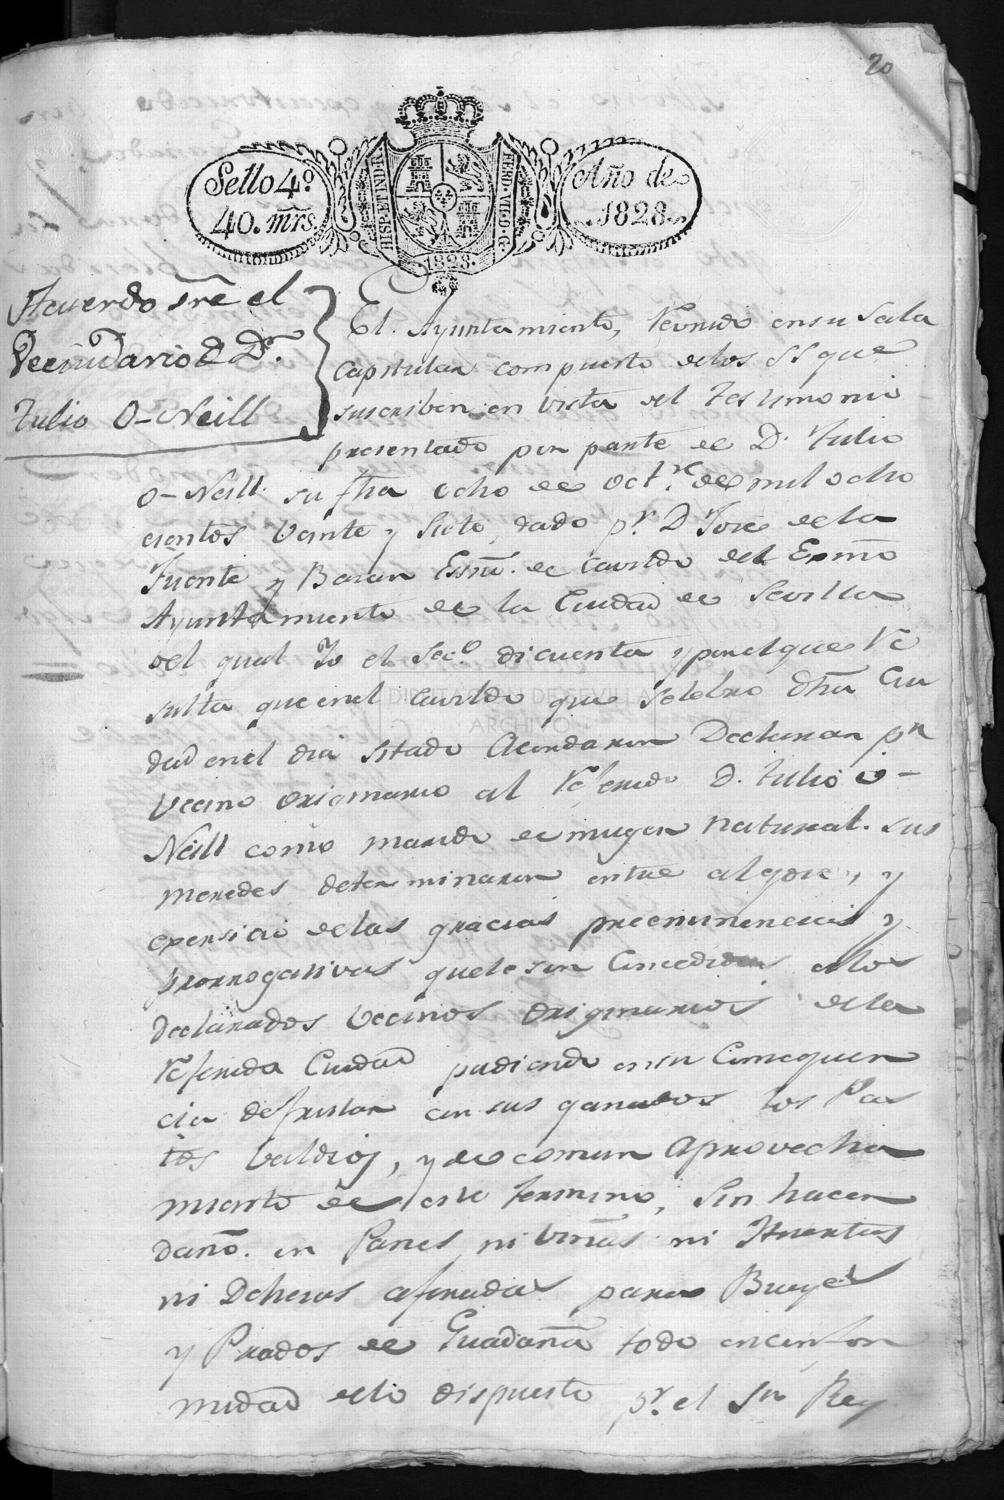 20
Sello 4º
40. mrs.
HISP. ET IND. R.
FERD. VII. D. G.
1828.
Año de
1828.
Acuerdo sre el
Vecindario d Dn.
Julio O-Neill
El Ayuntamiento, Reunido en su Sala
Capitular compuesto delos SS que
suscriben en vista del testimonio
presentado por parte de D. Julio
O-Neill su fha ocho de Octre. de mil ocho
cientos veinte y siete, dado pr. D Jose de la
Fuente y Essno. de Cavildo del Exmo
Ayuntamiento de la Ciudad de Sevilla
del qual Yo el Seco. di cuenta y por el que Re
sulta que en el Cavildo que Selebro dha Ciu
dad en el dia sitado Acordaron Declarar pr
Vecino originario al Referido D. Julio O-
Neill como marido de muger natural. sus
mercedes determinaron entre al goce, y
de las gracias preeminencias y
prorrogativas que le son Concedidas alos
declarados Vecinos originarios dela
Referida Ciudad pudiendo en su Consequen
cia desfrutar con sus ganados los Pas
tos baldios, y de comun aprovecha
miento de este termino, sin hacer
daño. en Panes, ni viñas ni Huertas
ni Dehesas para Bueyes
y Prados de Guadaña todo en confor
midad delo dispuesto pr. el Sr Rey
DIPUTACION DE SEVILLA
ARCHIVO